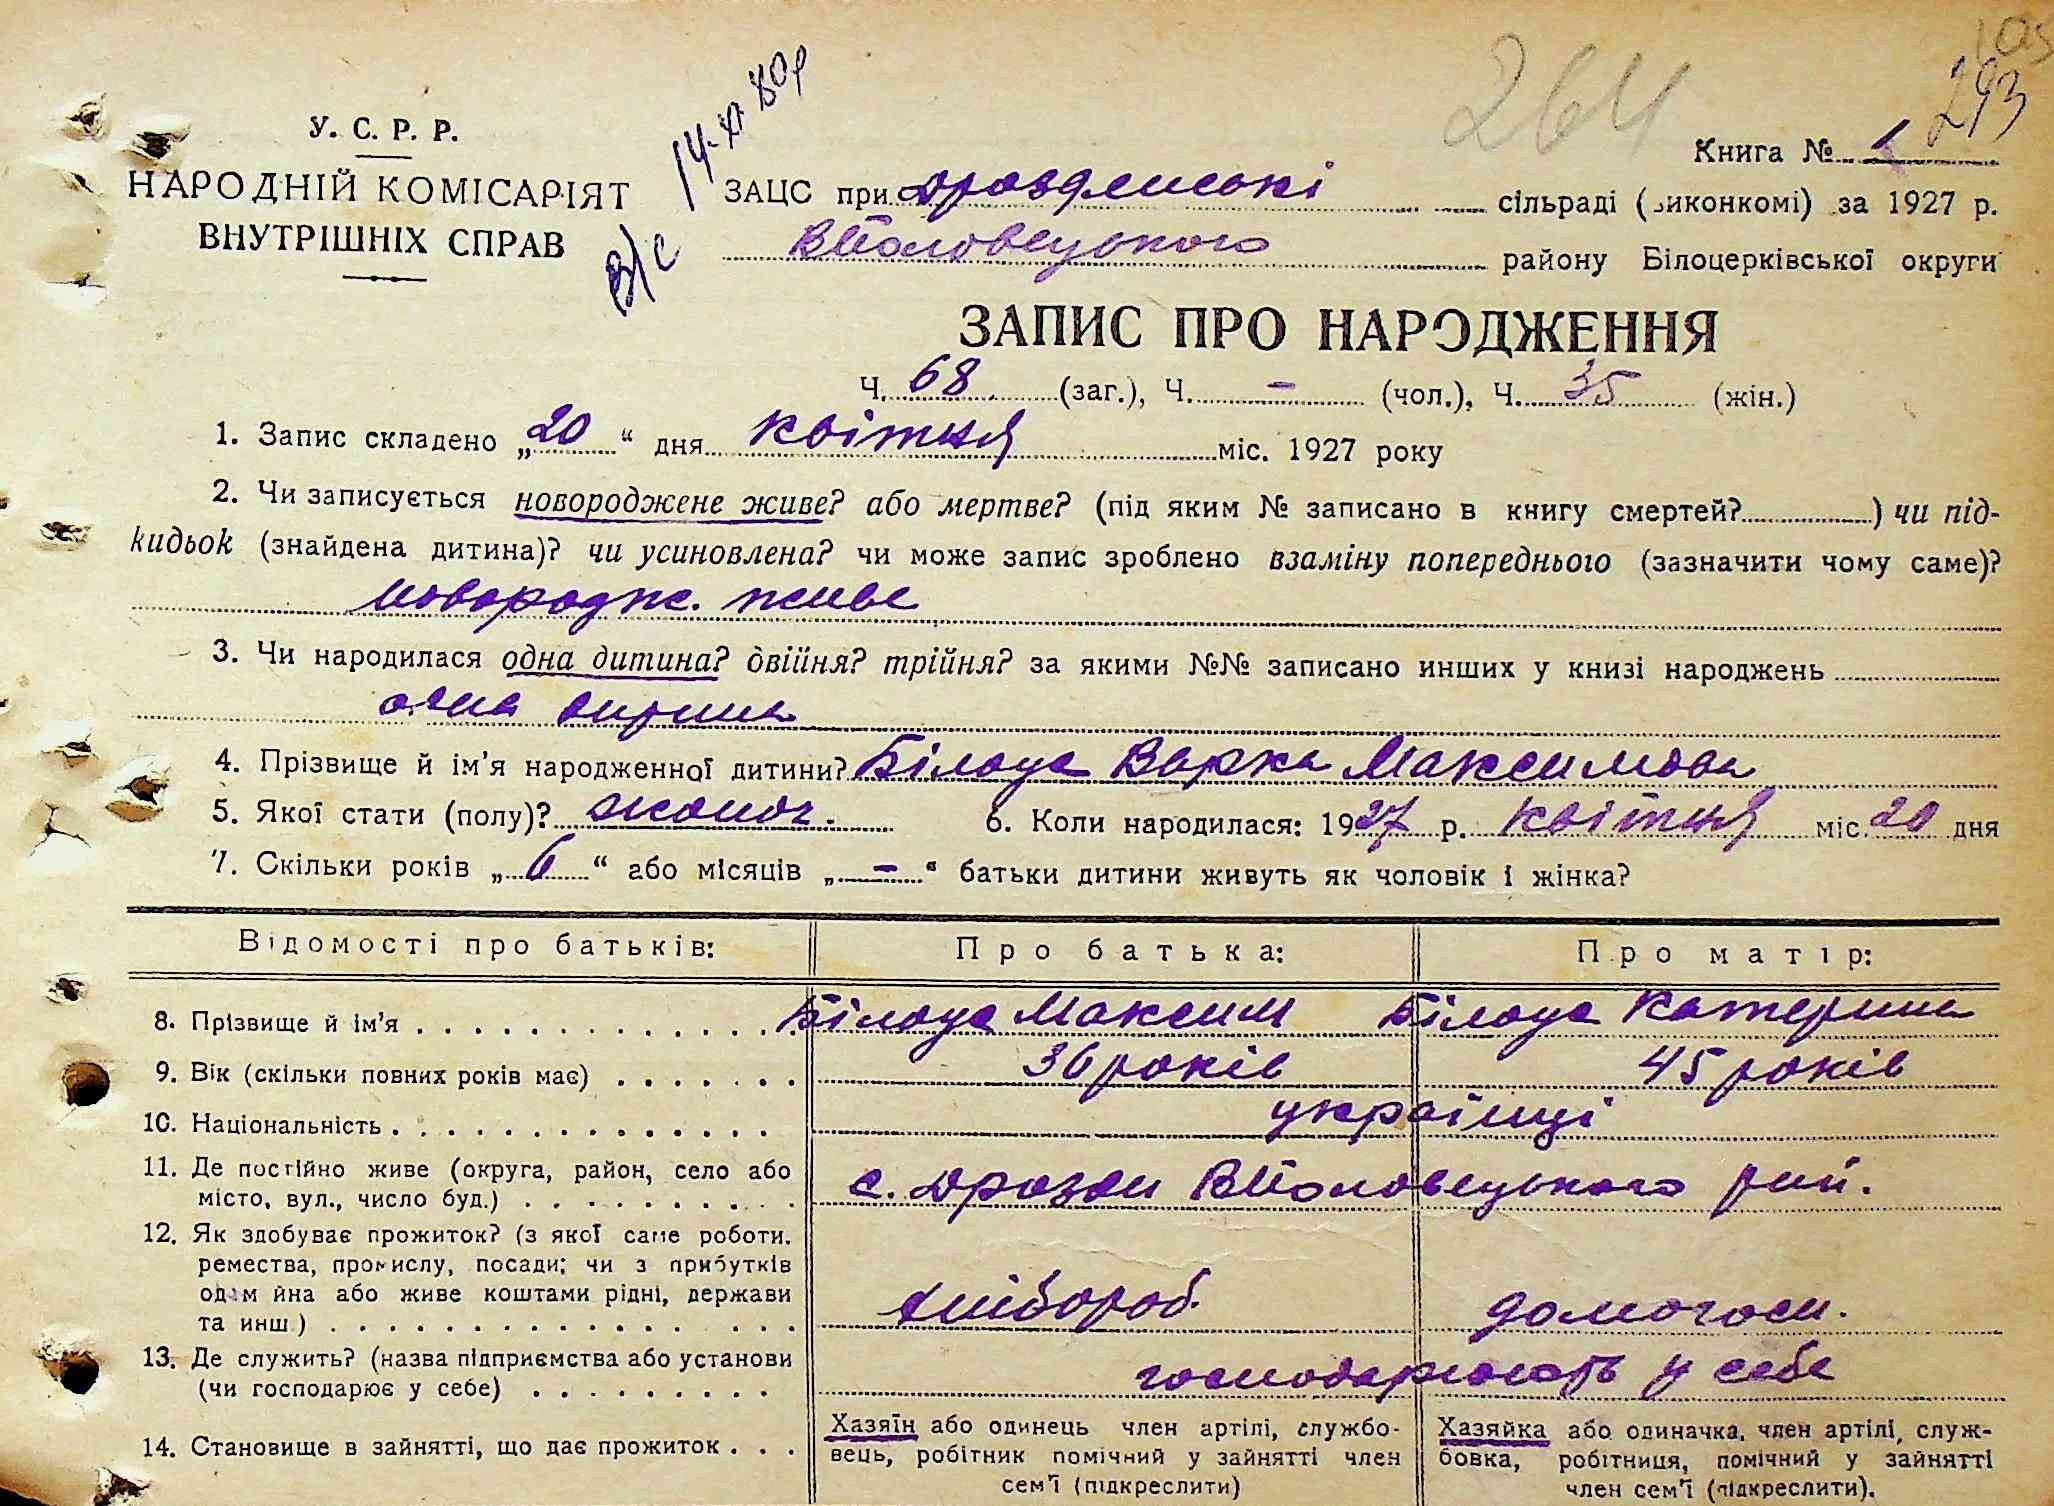 264
293
У. С. Р. Р.
НАРОДНІЙ КОМІСАРІЯТ
ВНУТРІШНІХ СПРАВ
14-XI 80р
В/С
Книга № 1
ЗАЦС при Дроздянські сільраді (виконкомі) за 1927 р.
ВПоловецького району Білоцерківської округи
ЗАПИС ПРО НАРОДЖЕННЯ
Ч. 68 (заг.), Ч. - (чол.), Ч. 35 (жін.)
1. Запис складено „20“ дня квітня міс. 1927 року
2. Чи записується новороджене живе? або мертве? (під яким № записано в книгу смертей?) чи під-
кидьок (знайдена дитина)? чи усиновлена? чи може запис зроблено взаміну попереднього (зазначити чому саме)?
новородж. живе
3. Чи народилася одна дитина? двійня? трійня? за якими №№ записано инших у книзі народжень
одна
4. Прізвище й ім’я народженної дитини? Білоус Варка Максимова
5. Якої стати (полу)? жіноч. 6. Коли народилася: 1927 р. квітня міс. 20 дня
7. Скільки років „6“ або місяців „-“ батьки дитини живуть як чоловік і жінка?
Відомості про батьків: Про батька: Про матір:
8. Прізвище й ім’я . . . . . . . . . . . . . . Білоус Максим Білоус Катерина
9. Вік (скільки повних років має) . . . . . . . 36 років 45 років
10. Національність . . . . . . . . . . . . . . українці
11. Де постійно живе (округа, район, село або
місто, вул., число буд.) . . . . . . . . . . с. Дрозди ВПоловецького рай.
12. Як здобуває прожиток? (з якої саме роботи,
ремества, промислу, посади; чи з прибутків
одам йна або живе коштами рідні, держави
та инш.) . . . . . . . . . . . . . . . . хлібороб. домогосп.
13. Де служить? (назва підприємства або установи
(чи господарює у себе) . . . . . . . . . господарюють у себе
14. Становище в зайнятті, що дає прожиток . . .
Хазяїн або одинець член артілі, службо-
вець, робітник помічний у зайнятті член
сем’ї (підкреслити)
Хазяйка або одиначка, член артілі, служ-
бовка, робітниця, помічний у зайнятті
член сем’ї (підкреслити).